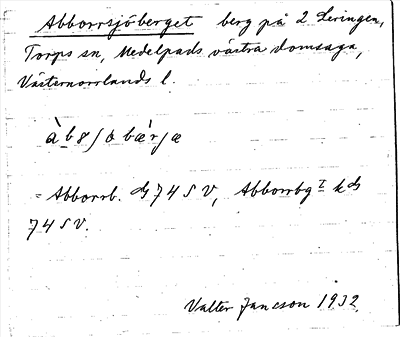 Abborrsjöberget berg på 2 Leringen,
Torps sn, Medelpads västra domsaga,
Västernorrlands l.
= Abborrb. ds 74 S V, Abborrbg I k ds
74 S V.
Valter Jansson 1932.